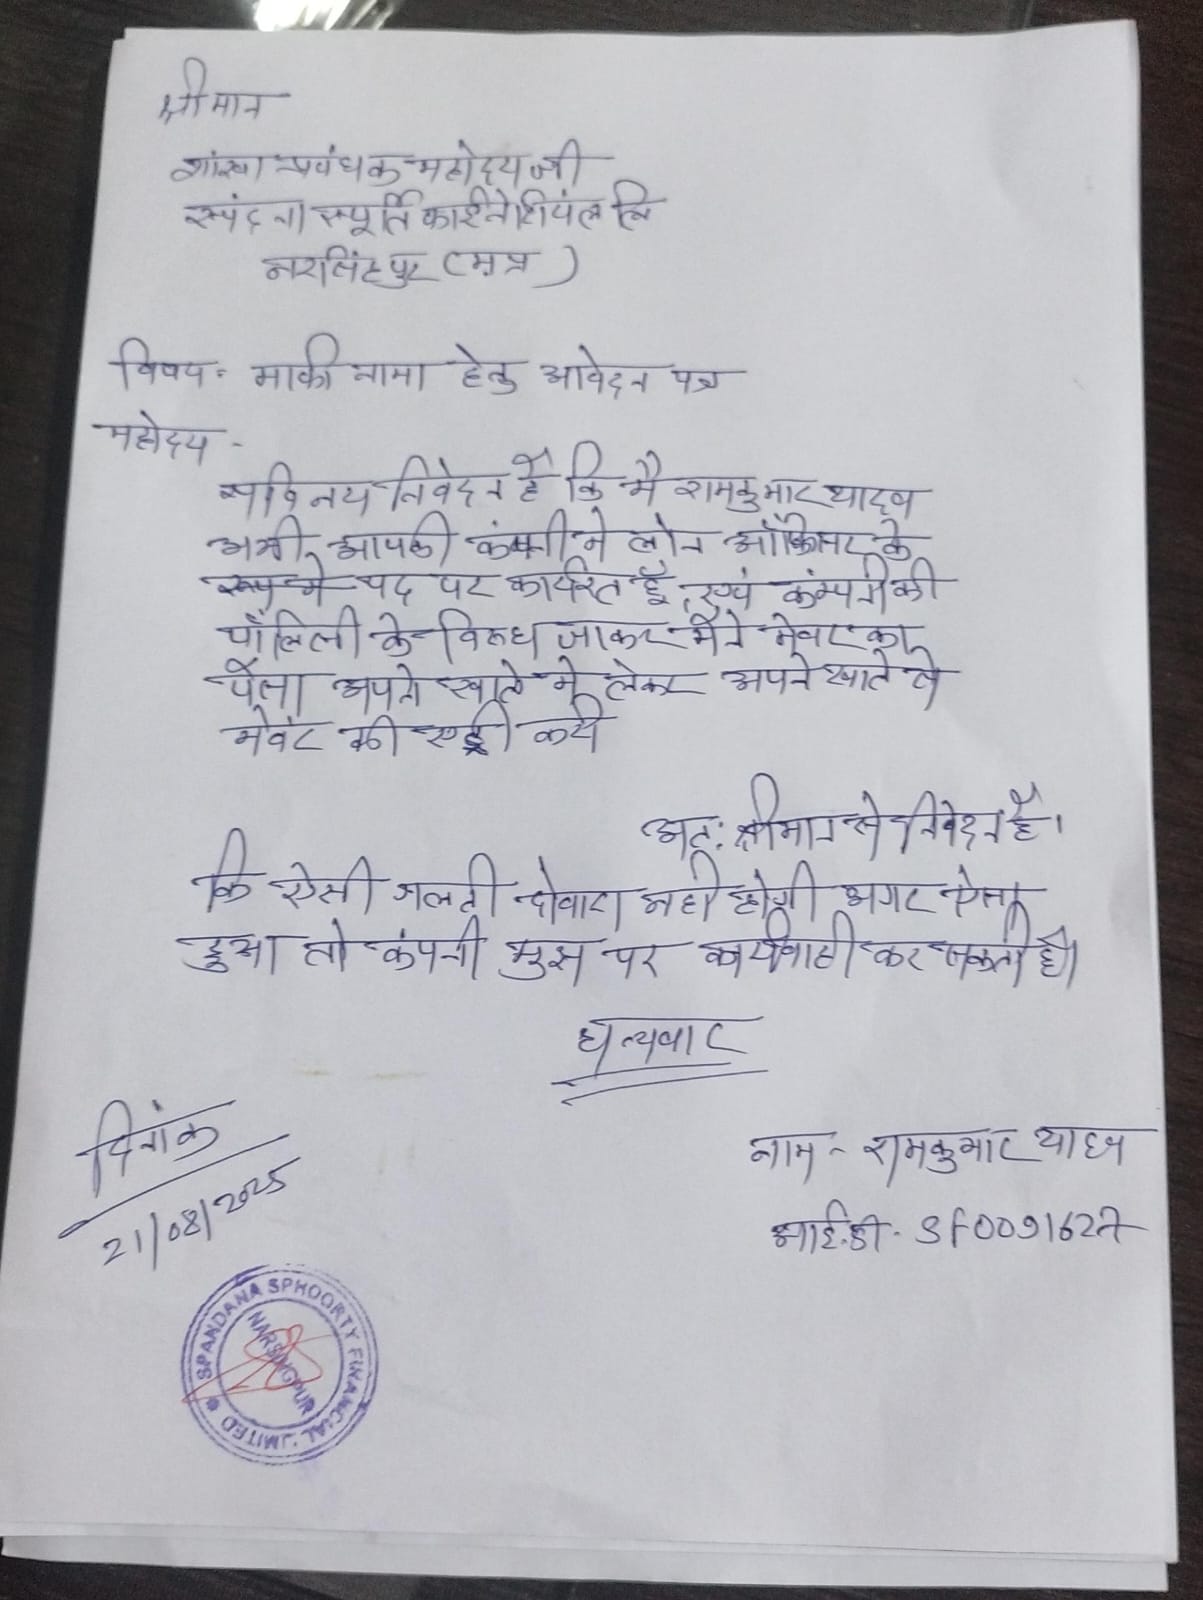 श्रीमान
शांखा प्रवंधक महोदय जी
स्पंदना स्पूर्ति फाईनेशियंल लि
नरसिंहपुर (मप्र)
विषय:- माफी नामा हेतु आवेदन पत्र
महोदय -
सविनय निवेदन है कि मै रामकुमार यादव
अभी आपकी कंम्पनी मे लोन ऑफिसर के
रूप मे पद पर कार्यरत हूँ, एवं कंम्पनी की
पॉलिसी के विरुध जाकर मैने मेंबर का
पैसा अपने खाते मे लेकर अपने खाते से
मेंबर की एन्ट्री करी
अतः श्रीमान से निवेदन है।
कि ऐसी गलती दोवारा नही होगी अगर ऐसा
हुआ तो कंपनी मुझ पर कार्यवाही कर सकती है।
धन्यवाद
दिनांक
21/08/2025
नाम - रामकुमार यादव
आई.डी - SF0091627
SPANDANA SPHOORTY FINANCIAL LIMITED
NARSINGPUR